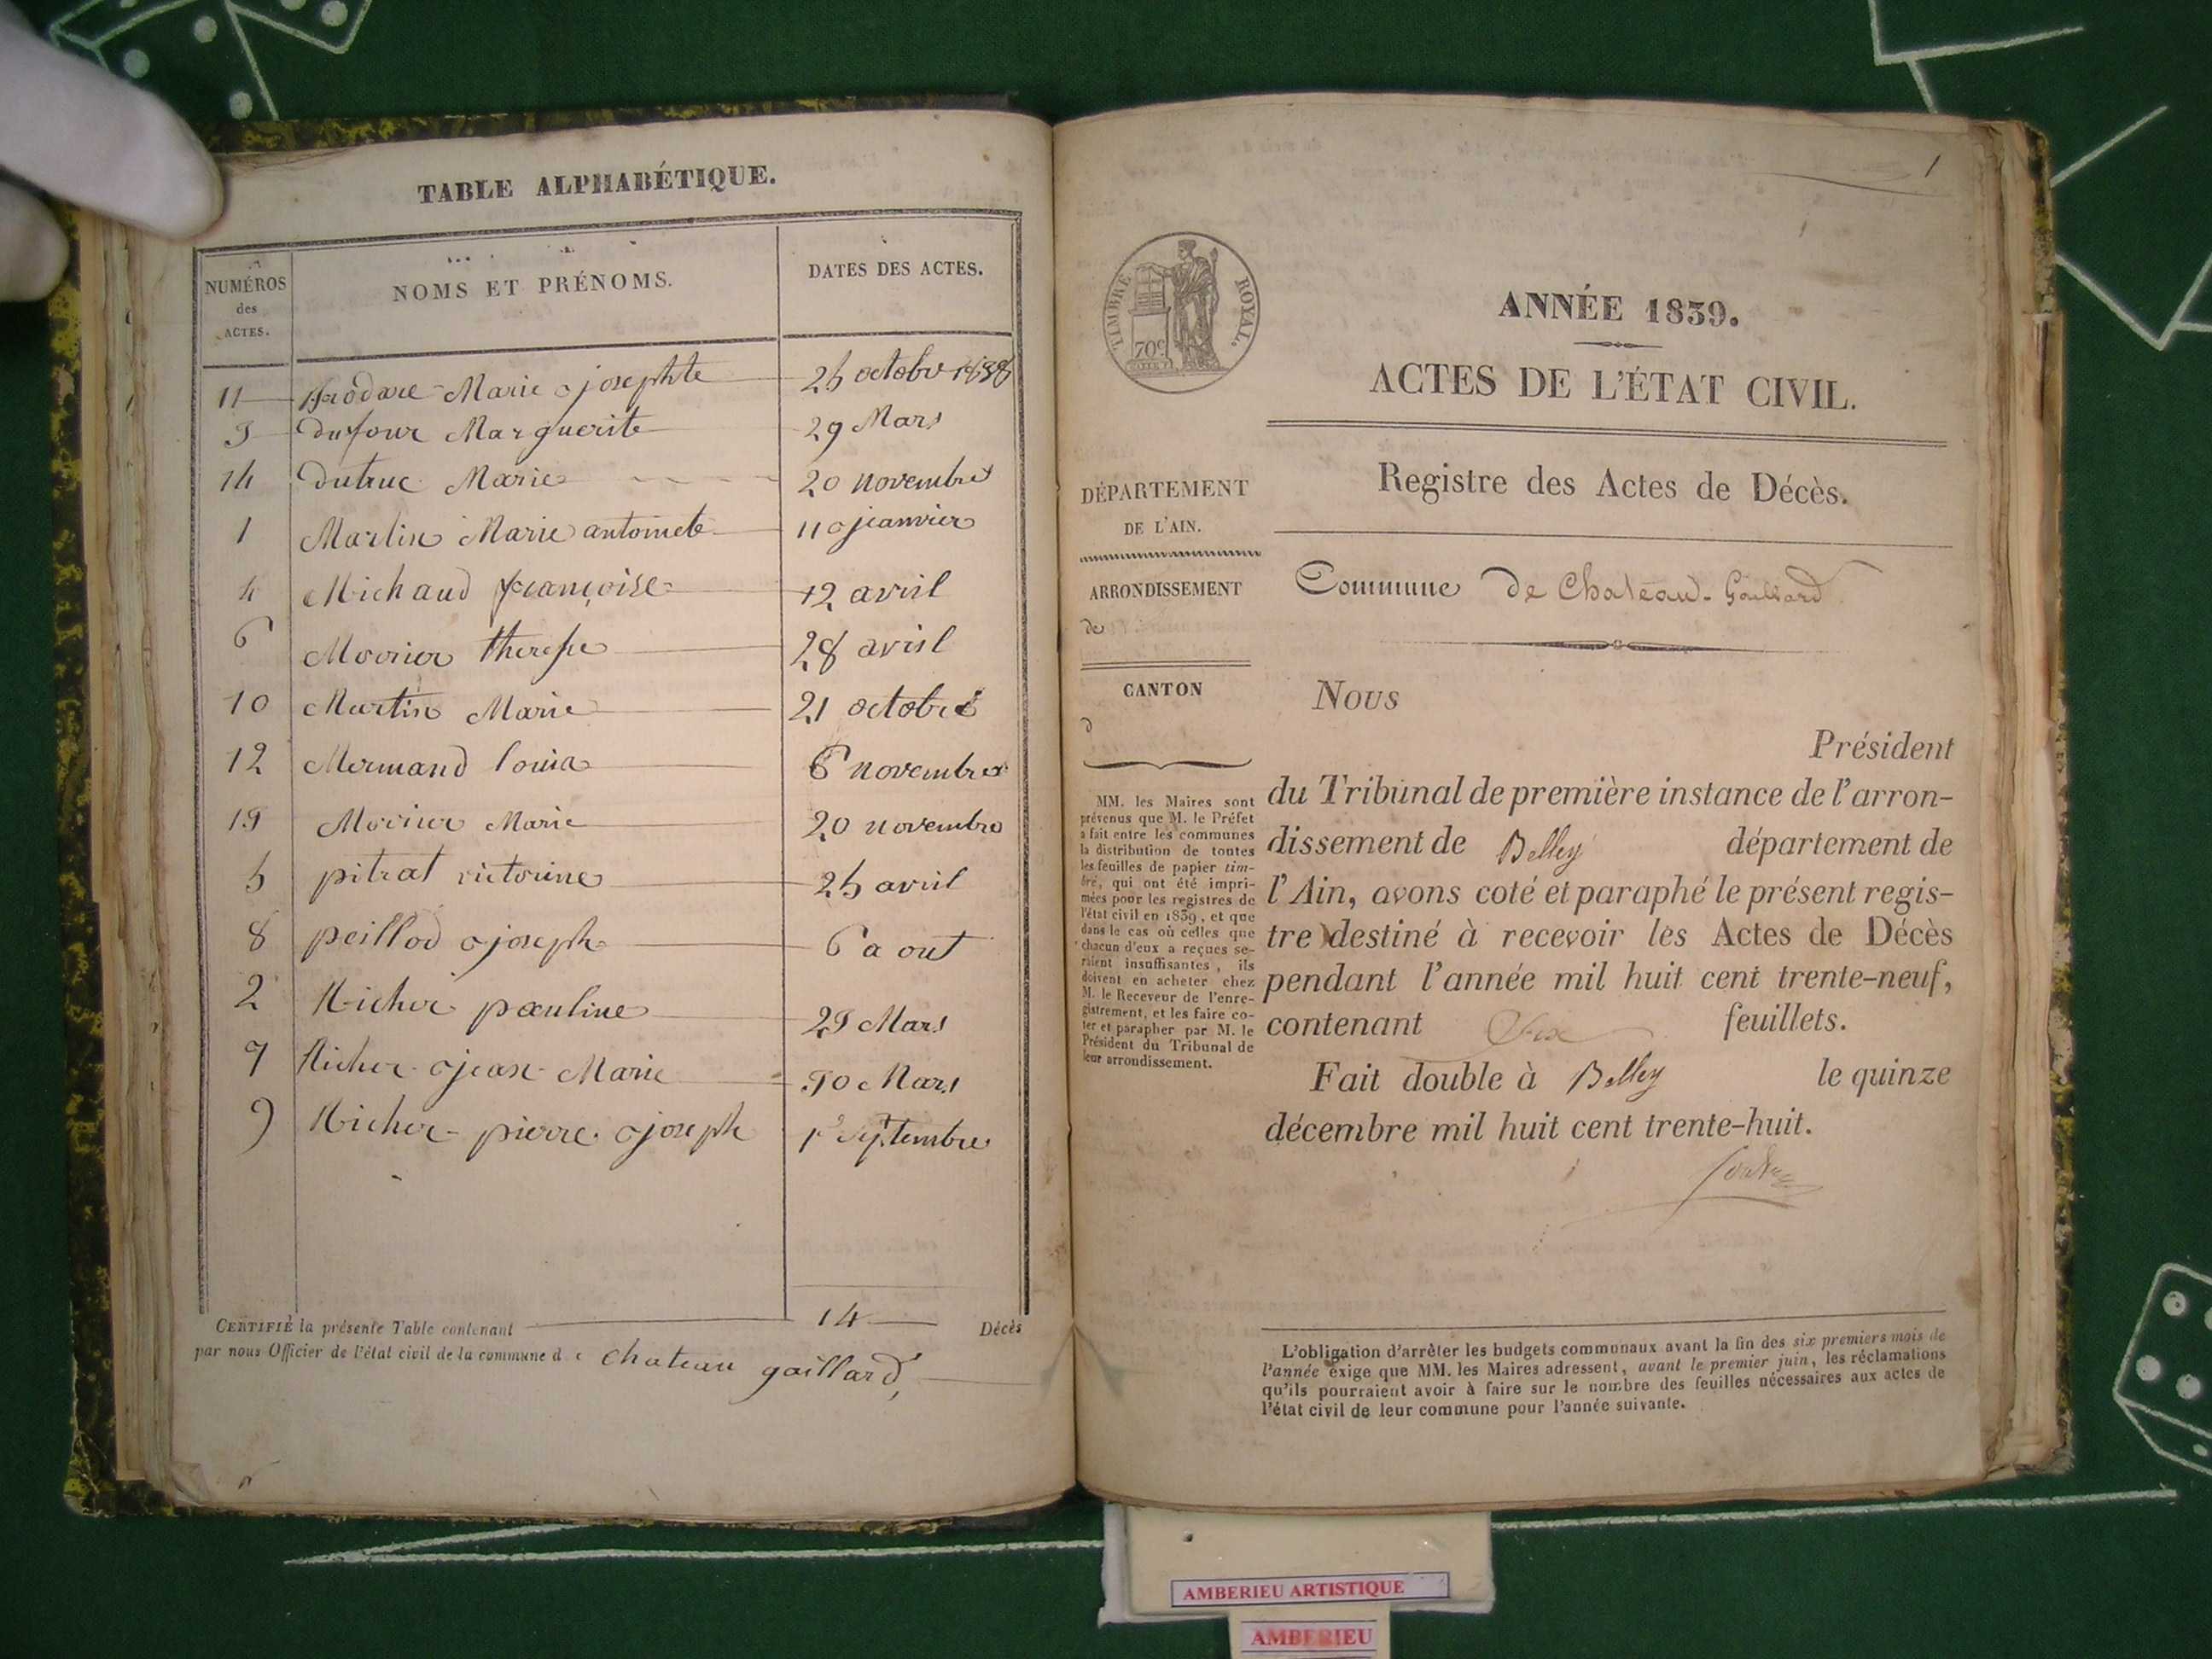 TABLE ALPHABÉTIQUE.
NUMÉROS des ACTES. NOMS ET PRÉNOMS. DATES DES ACTES.
11 Marie josephte 25 octobre 1838
3 Dufour Marguerite 29 Mars
14 Dutruc Marie 20 novembre
1 Martin Marie antoinete 11 janvier
4 Michaud françoise 12 avril
6 Morier therese 28 avril
10 Martin Marie 21 octobre
12 Mermand louis 6 novembre
13 Morier Marie 20 novembre
5 pitrat victorine 25 avril
8 peillod joseph 6 a out
2 Richer pauline 29 Mars
7 Richer jean Marie 30 Mars
9 Richer pierre joseph 1er Septembre
CERTIFIÉ la présente Table contenant 14 Décès
par nous Officier de l'état civil de la commune de chateau gaillard,
1
TIMBRE ROYAL.
70c
ANNÉE 1839.
ACTES DE L'ÉTAT CIVIL.
Registre des Actes de Décès.
DÉPARTEMENT
DE L'AIN.
ARRONDISSEMENT
de
CANTON
d
MM. les Maires sont
prévenus que M. le Préfet
a fait entre les communes
la distribution de toutes
les feuilles de papier tim-
bré, qui ont été impri-
mées pour les registres de
l'état civil en 1839, et que
dans le cas où celles que
chacun d'eux a reçues se-
raient insuffisantes, ils
doivent en acheter chez
M. le Receveur de l'enre-
gistrement, et les faire co-
ter et parapher par M. le
Président du Tribunal de
leur arrondissement.
Commune de Chateau-Gaillard
Nous
Président
du Tribunal de première instance de l'arron-
dissement de Belley département de
l'Ain, avons coté et paraphé le présent regis-
tre destiné à recevoir les Actes de Décès
pendant l'année mil huit cent trente-neuf,
contenant feuillets.
Fait double à Belley le quinze
décembre mil huit cent trente-huit.
L'obligation d'arrêter les budgets communaux avant la fin des six premiers mois de
l'année exige que MM. les Maires adressent, avant le premier juin, les réclamations
qu'ils pourraient avoir à faire sur le nombre des feuilles nécessaires aux actes de
l'état civil de leur commune pour l'année suivante.
AMBERIEU ARTISTIQUE
AMBERIEU